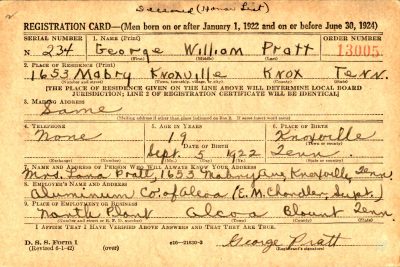 Second (Honor List)
REGISTRATION CARD—(Men born on or after January 1, 1922 and on or before June 30, 1924)
SERIAL NUMBER 1. NAME (Print) ORDER NUMBER
N 234 George William Pratt 13005
(First) (Middle) (Last)
2. PLACE OF RESIDENCE (Print)
1653 Mabry Knoxville Knox Tenn.
(Number and street) (Town, township, village, or city) (County) (State)
[THE PLACE OF RESIDENCE GIVEN ON THE LINE ABOVE WILL DETERMINE LOCAL BOARD
JURISDICTION; LINE 2 OF REGISTRATION CERTIFICATE WILL BE IDENTICAL]
3. MAILING ADDRESS
Same
[Mailing address if other than place indicated on line 2. If same insert word same]
4. TELEPHONE 5. AGE IN YEARS 6. PLACE OF BIRTH
None 19 Knoxville
DATE OF BIRTH (Town or county)
Sept. 5 1922 Tenn.
(Exchange) (Number) (Mo.) (Day) (Yr.) (State or country)
7. NAME AND ADDRESS OF PERSON WHO WILL ALWAYS KNOW YOUR ADDRESS
Mrs. Pratt, 1653 Mabry Ave Knoxville Tenn
8. EMPLOYER'S NAME AND ADDRESS
Aluminum Co. of Alcoa (E. M. Chandler, Supt.)
9. PLACE OF EMPLOYMENT OR BUSINESS
North Plant Alcoa Blount Tenn.
(Number and street or R. F. D. number) (Town) (County) (State)
I AFFIRM THAT I HAVE VERIFIED ABOVE ANSWERS AND THAT THEY ARE TRUE.
D. S. S. Form 1 George Pratt
(Revised 6-1-42) (over) 16—21630-2 (Registrant's signature)